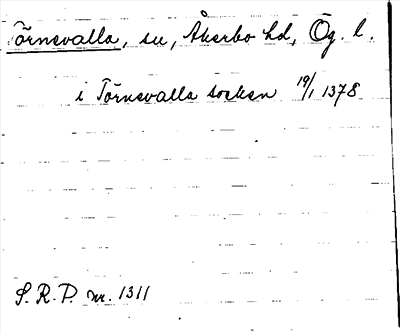 Törnevalla, sn, Åkerbo hd, Ög. l.
i Törnevalla socken 19/1 1378
S. R. P. nr. 1311